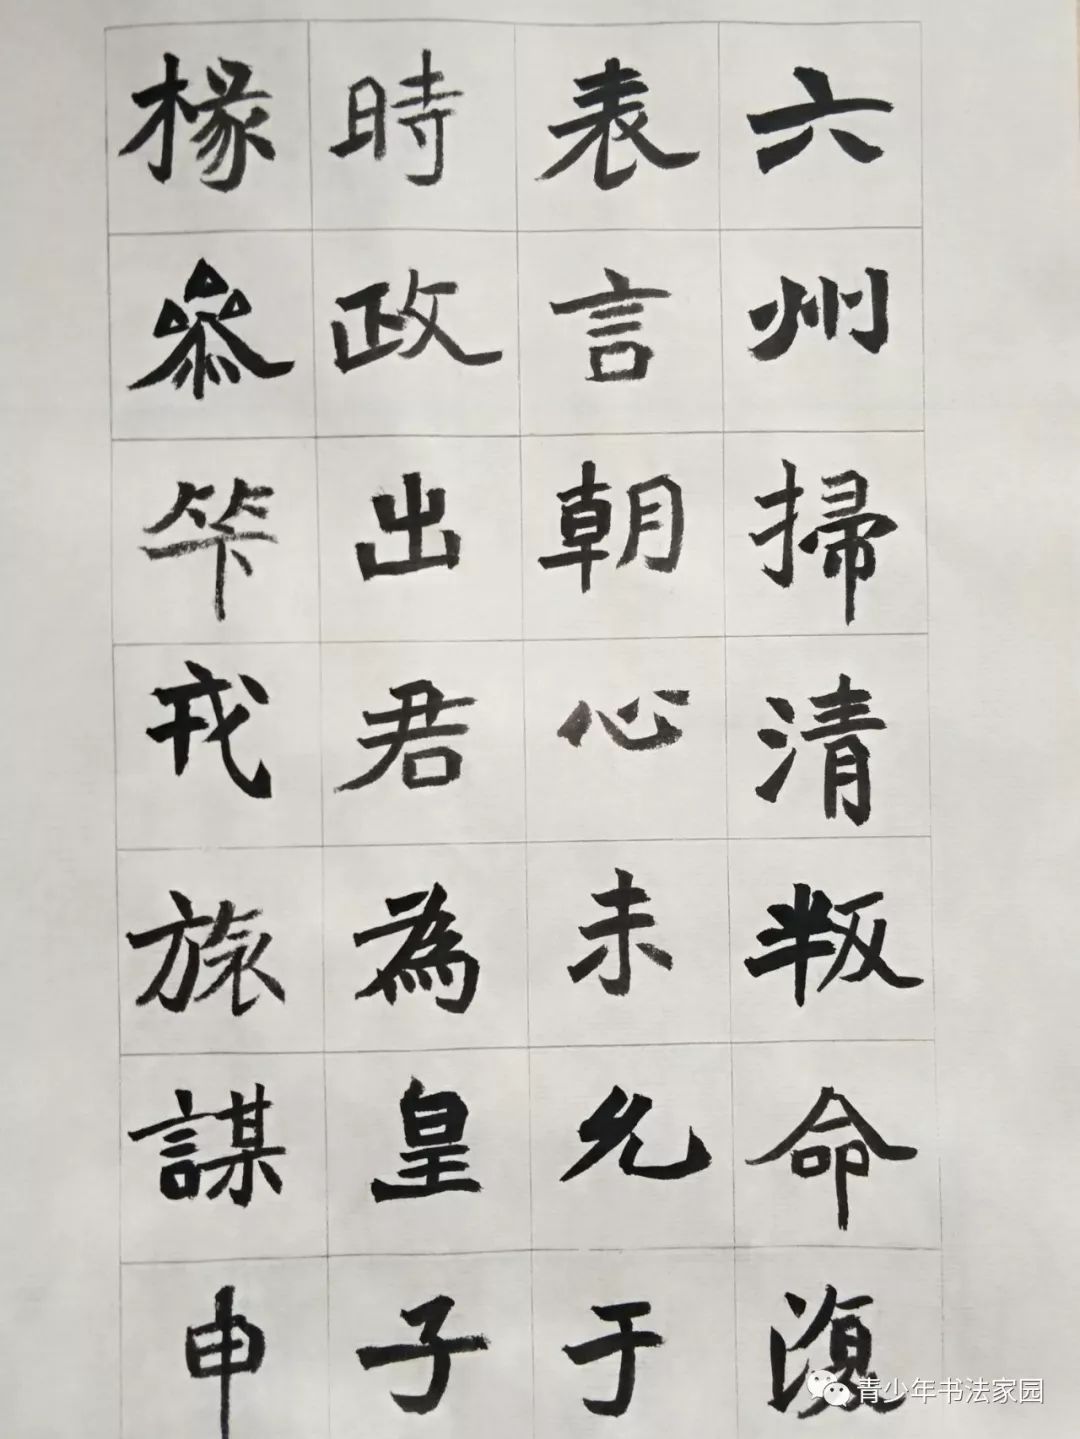 六州掃清叛命復
表言朝心未允于
時政出君為皇子
椽參笇戎旅謀申
青少年书法家园